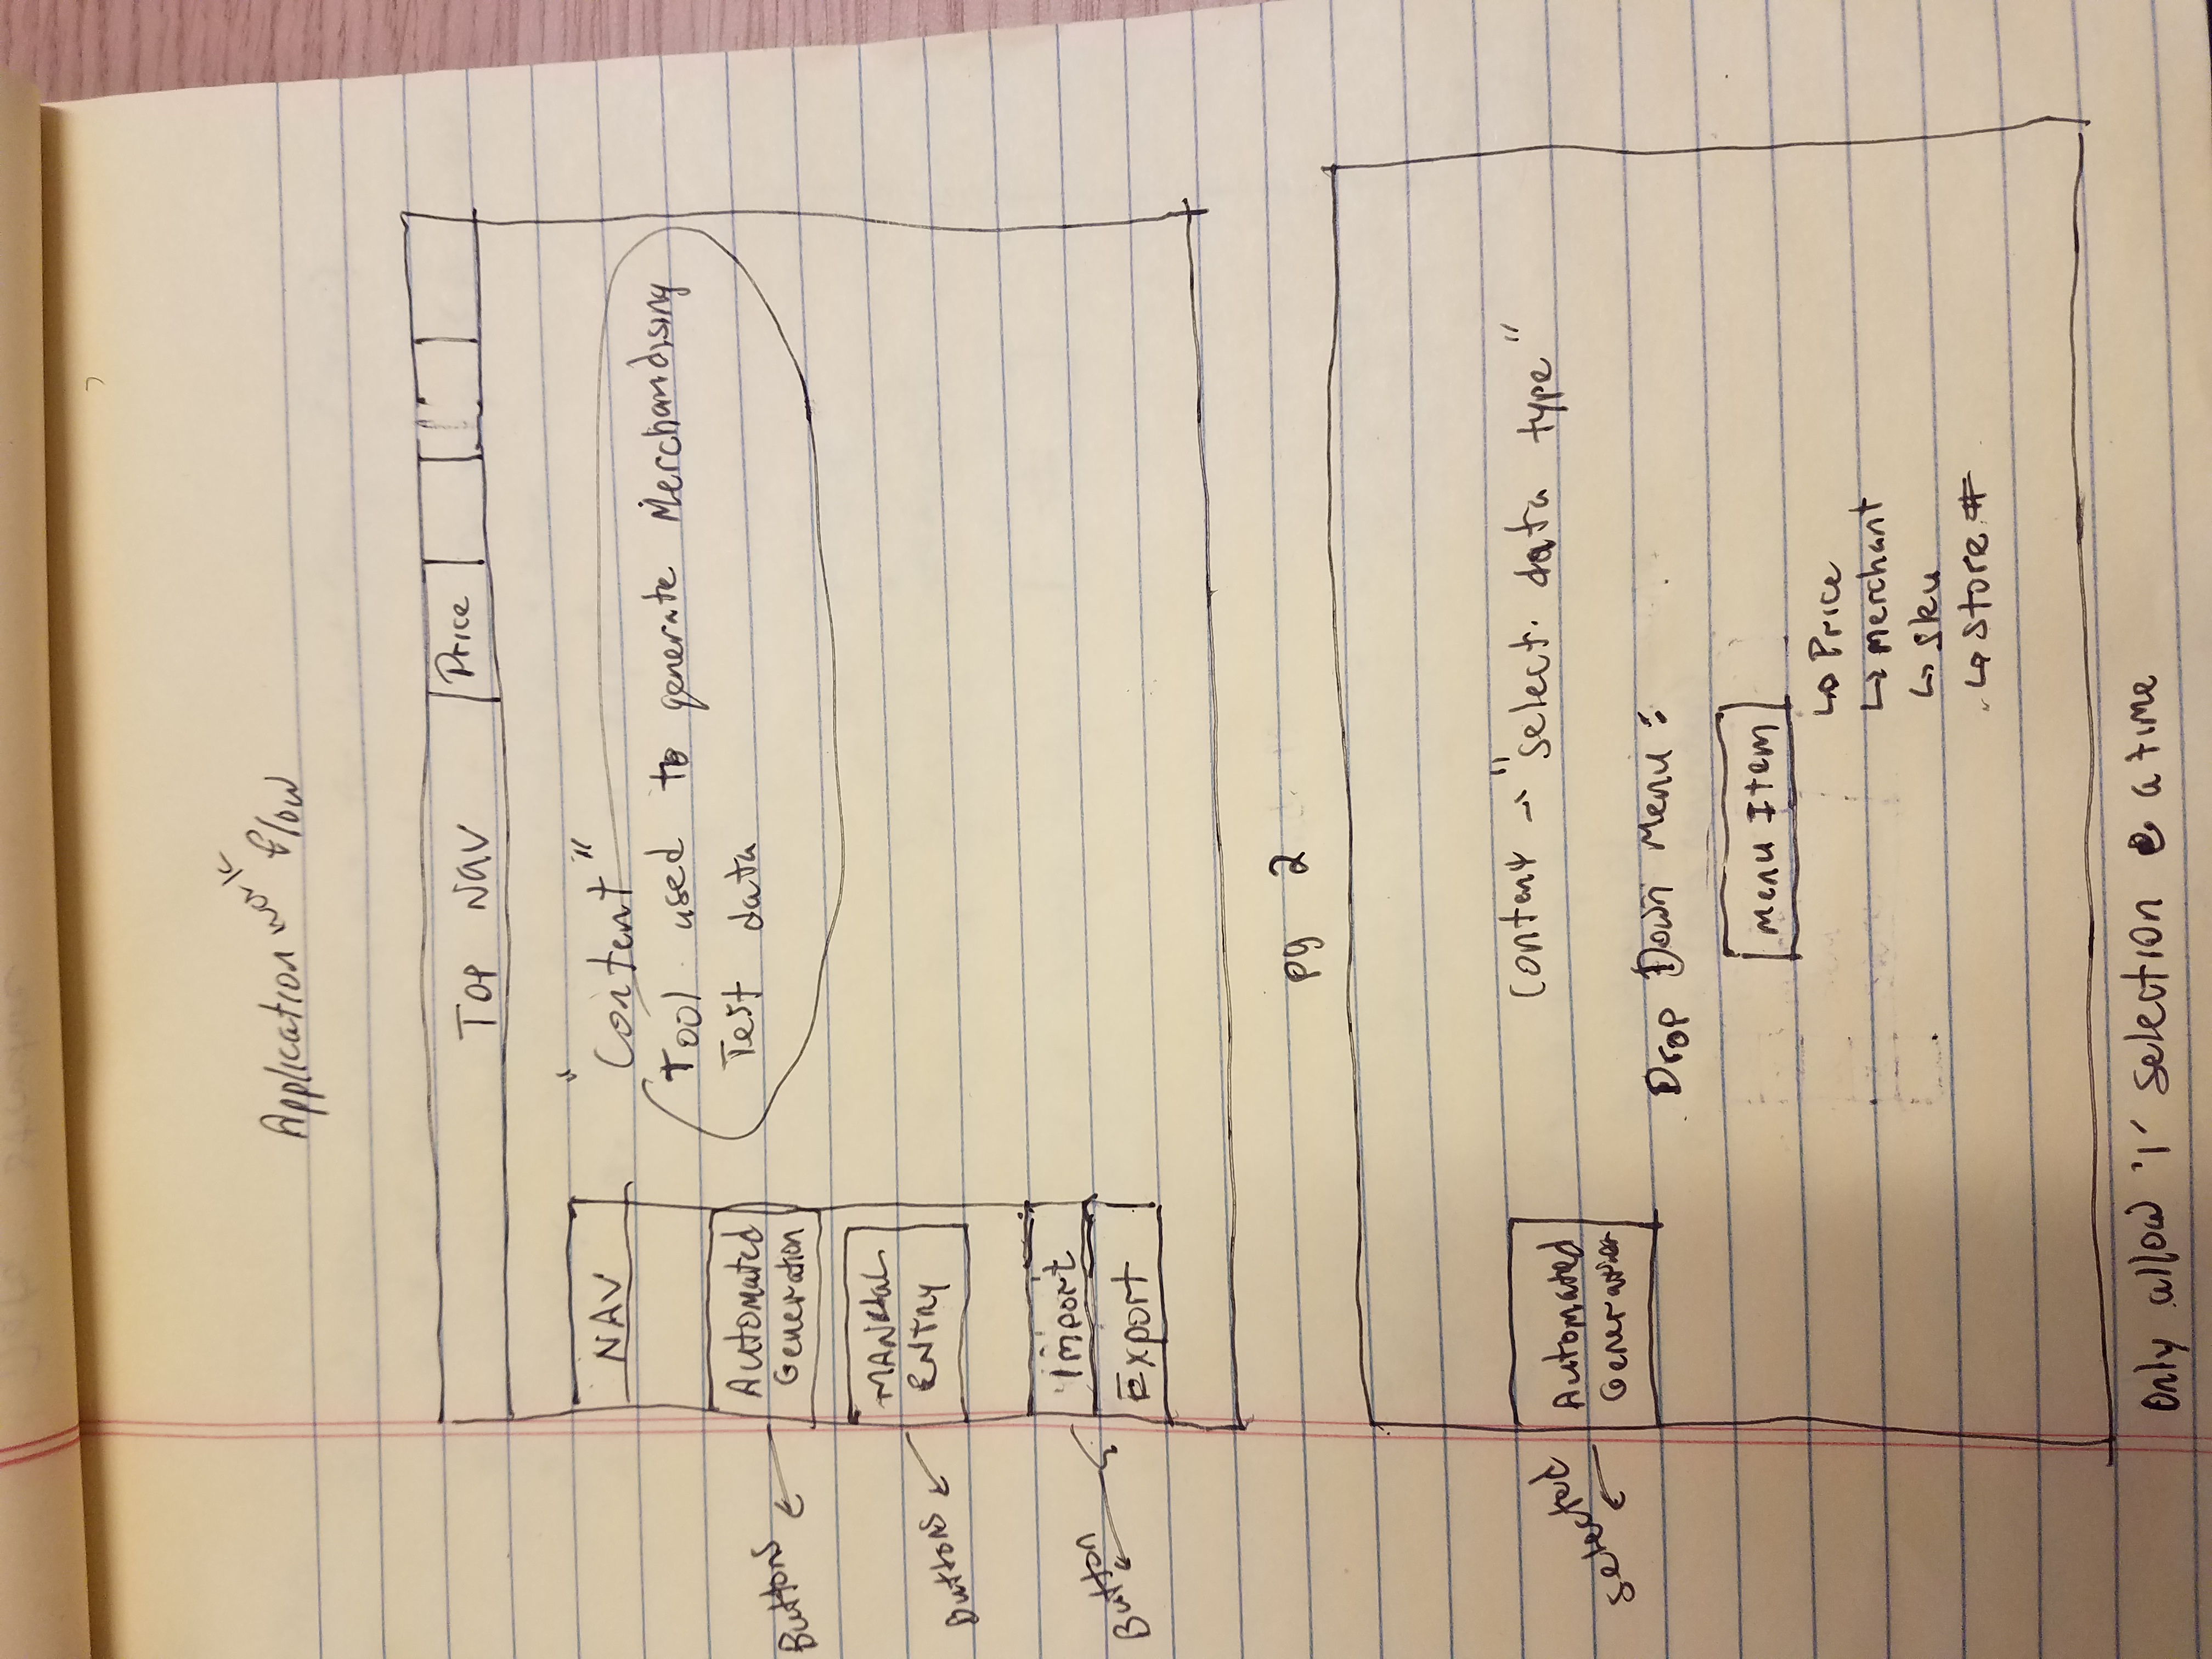 Application work flow
Top Nav
Price
NAV
"Content"
Tool used to generate Merchandising
Test data
Automated
Generation
Buttons
MANUAL
ENTRY
Buttons
Import
Button
Export
pg 2
Content → "select data type"
Automated
Generation
selected
Drop Down Menu:
Menu Item
↳ Price
↳ merchant
↳ sku
↳ store #
Only allow '1' selection @ a time